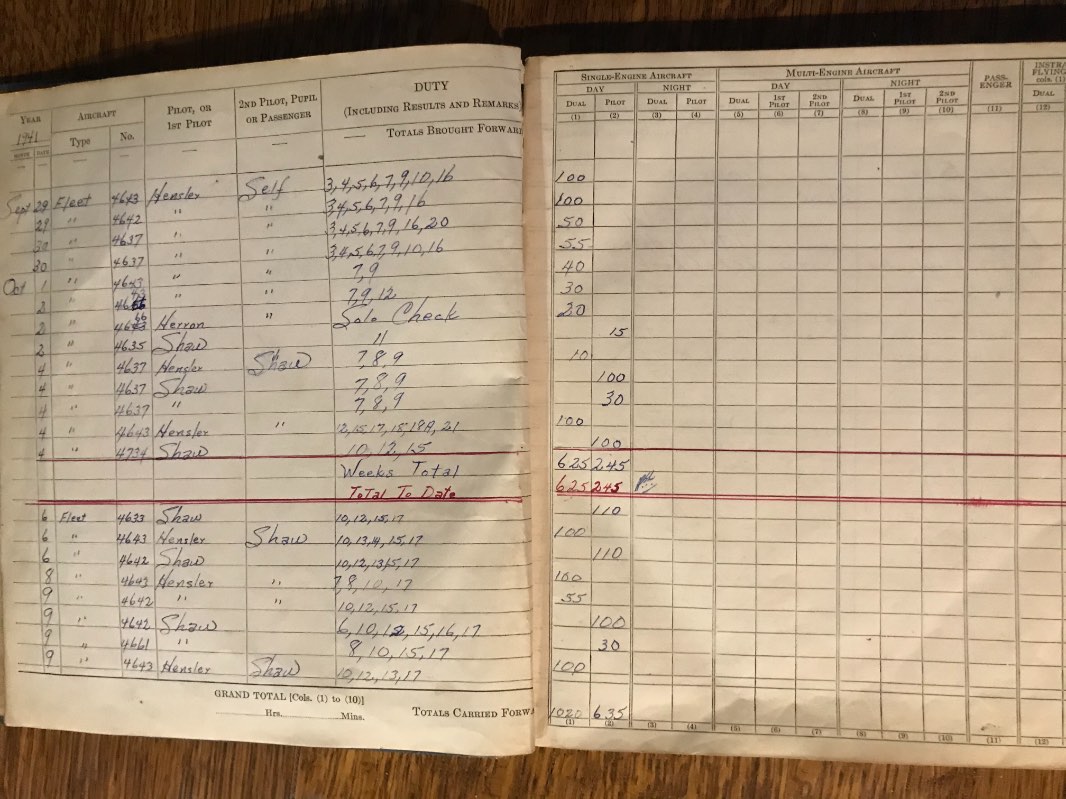 YEAR AIRCRAFT PILOT, OR 1ST PILOT 2ND PILOT, PUPIL OR PASSENGER DUTY (INCLUDING RESULTS AND REMARKS) SINGLE-ENGINE AIRCRAFT MULTI-ENGINE AIRCRAFT PASS-ENGER INSTR FLYING
1941 Type No. DAY NIGHT DAY NIGHT cols. (1)
MONTH DATE DUAL PILOT DUAL PILOT DUAL 1ST PILOT 2ND PILOT DUAL 1ST PILOT 2ND PILOT DUAL
— — — — — TOTALS BROUGHT FORWARD (1) (2) (3) (4) (5) (6) (7) (8) (9) (10) (11) (12)
Sept 29 Fleet 4643 Hensler Self 3,4,5,6,7,9,10,16 100
29 " 4642 " " 3,4,5,6,7,9,16 100
30 " 4637 " " 3,4,5,6,7,9,16,20 50
30 " 4637 " " 3,4,5,6,7,9,10,16 55
Oct 1 " 4643 " " 7,9 40
2 " " " 7,9,12 30
2 " Herron " Solo Check 20
2 " 4635 Shaw " 15
4 " 4637 Hensler Shaw 7,8,9 10
4 " 4637 Shaw 7,8,9 100
4 " 4637 " 7,8,9 30
4 " 4643 Hensler " 12,15,17,15,18A,21 100
4 " 4734 Shaw 10,12,15 100
Weeks Total 625 245
Total To Date 625 245
6 Fleet 4633 Shaw 10,12,15,17 110
6 " 4643 Hensler Shaw 10,13,14,15,17 100
6 " 4642 Shaw 10,12,13,15,17 110
8 " 4643 Hensler " 7,8,10,17 100
9 " 4642 " " 10,12,15,17 55
9 " 4642 Shaw 6,10,12,15,16,17 100
9 " 4661 " 8,10,15,17 30
9 " 4643 Hensler Shaw 10,12,13,17 100
GRAND TOTAL [Cols. (1) to (10)]
Hrs. Mins. TOTALS CARRIED FORW 1020 635
(1) (2) (3) (4) (5) (6) (7) (8) (9) (10) (11) (12)